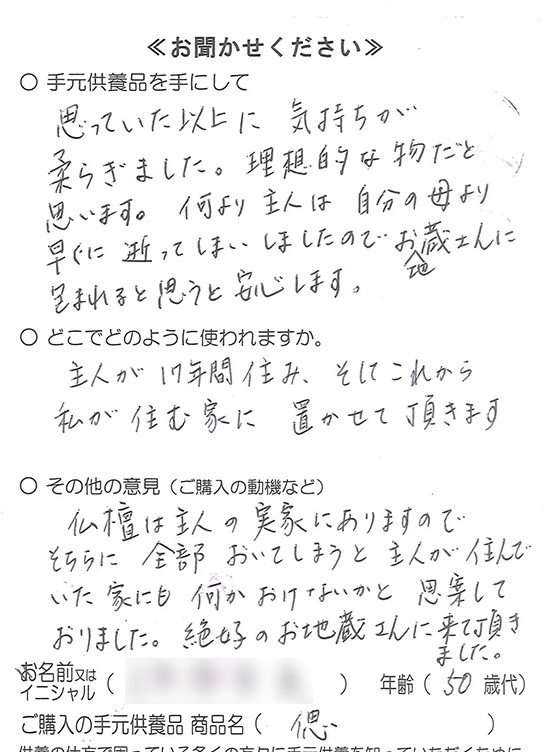 ≪お聞かせください≫
○ 手元供養品を手にして
思っていた以上に 気持ちが
柔らぎました。理想的な物だと
思います。 何より 主人は 自分の母より
早くに 逝ってしまいしましたので お地蔵さんに
包まれると思うと安心します。
○ どこでどのように使われますか。
主人が 17年間 住み、そしてこれから
私が 住む 家に 置かせて 頂きます
○ その他の意見（ご購入の動機など）
仏檀は主人の実家にありますので
そちらに 全部 おいてしまうと 主人が 住んで
いた 家にも 何か おけないかと 思案して
おりました。絶好のお地蔵さんに来て頂き
ました。
お名前又は
イニシャル（ ） 年齢（ 50 歳代）
ご購入の手元供養品 商品名（ 偲 ）